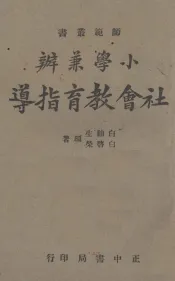 師範叢書
小學兼辦
社會教育指導
白動生
白啓榮
編著
正中書局印行